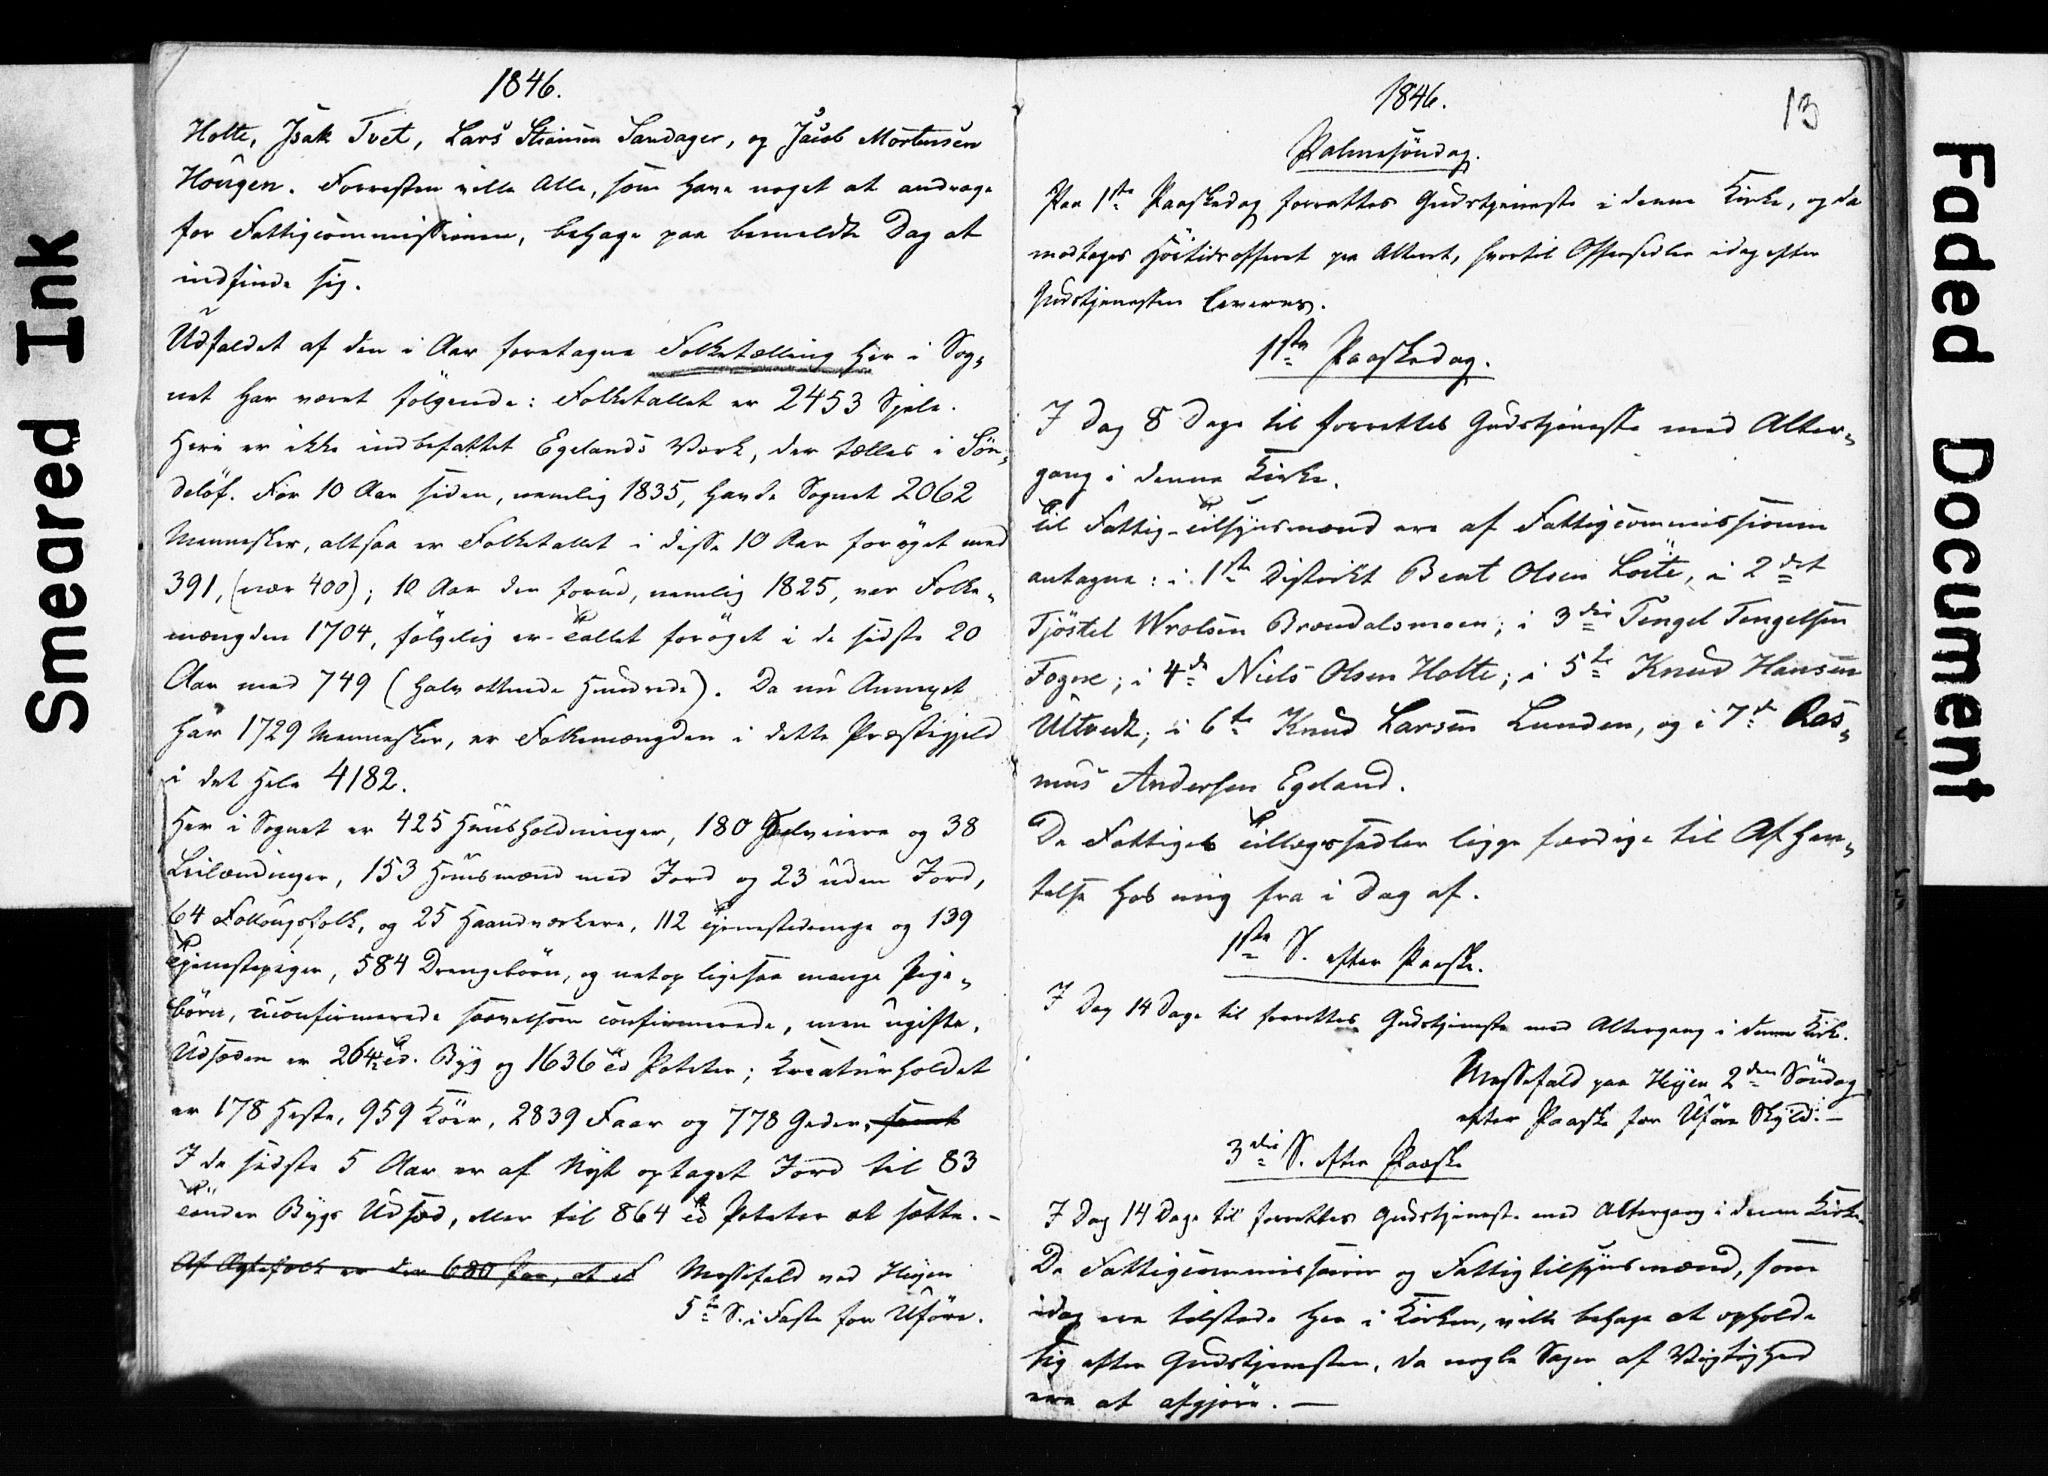 Smeared Ink
1846.
Holte, Isak Tvet, Lars Sandager, og Jacob Mortensen
Hougen. Forresten ville Alle, som have noget at andrage
for Fattigcommissionen, behage paa bemeldte Dag at
indfinde sig.
Udfaldet af den i Aar foretagne Folketælling her i Sog-
net har været følgende: Folketallet er 2453 Sjele.
Heri er ikke indbefattet Egelands Værk, der tælles i Sön-
delöf. For 10 Aar siden, nemlig 1835, havde Sognet 2062
Mennesker, altsaa er Folketallet i disse 10 Aar forøget med
391, (nær 400); 10 Aar der forud, nemlig 1825, var Folke-
mængden 1704, følgelig er Tallet forøget i de sidste 20
Aar med 749 (halv ottende Hundrede). Da nu Annexet
har 1729 Mennesker, er Folkemængden i dette Præstegjeld
i det Hele 4182.
Her i Sognet er 425 Huusholdninger, 180 Selveiere og 38
Leilændinger, 153 Huusmænd med Jord og 23 uden Jord,
64 Follougsfolk, og 25 Haandværkere, 112 Tjenestedrenge og 139
Tjenestepiger, 584 Drengebörn, og netop ligesaa mange Pige-
börn, uconfirmerede saavelsom confirmerede, men ugifte.
Udsæden er 264½ Td. Byg og 1636 Td Poteter; Kreaturholdet
er 178 Heste, 959 Köer, 2839 Faar og 778 Geder, samt
I de sidste 5 Aar er af Nyt optaget Jord til 83
Tönder Bygs Udsæd, eller til 864 Td Poteter at sætte. -
Af Ægtefolk er der 680 Par, at F
Messefald ved Heien
5te S. i Faste for Uföre.
1846.
13
Palmesöndag.
Paa 1ste Paaskedag forrettes Gudstjeneste i denne Kirke, og da
modtages Höitidsofferet paa Alteret, hvortil Offersedler idag efter
Gudstjenesten leveres.
1ste Paaskedag.
I Dag 8 Dage til forrettes Gudstjeneste med Alter-
gang i denne Kirke.
Til Fattig-Tilsynsmænd ere af Fattigcommissionen
antagne: i 1ste District Bent Olsen Löite, i 2det
Tjöstel Wrolsen Brændalsmoen; i 3die Tengel Tengelsen
Fogne; i 4de Niels Olsen Holte; i 5te Knud Hansen
Ultvedt; i 6te Knud Larsen Lunden, og i 7de Ras-
mus Andersen Egeland.
De Fattiges Tillægssedler ligge færdige til Afhen-
telse hos mig fra i Dag af.
1ste S. efter Paaske.
I Dag 14 Dage til forrettes Gudstjeneste med Altergang i denne Kirke.
Messefald paa Heien 2den Söndag
efter Paaske for Uföre Skyld. -
3die S. efter Paaske
I Dag 14 Dage til forrettes Gudstjeneste med Altergang i denne Kirke.
De Fattigcommissairer og Fattigtilsynsmænd, som
idag ere tilstede her i Kirken, ville behage at opholde
sig efter Gudstjenesten, da nogle Sager af Vigtighed
ere at afgjöre. -
Faded Document